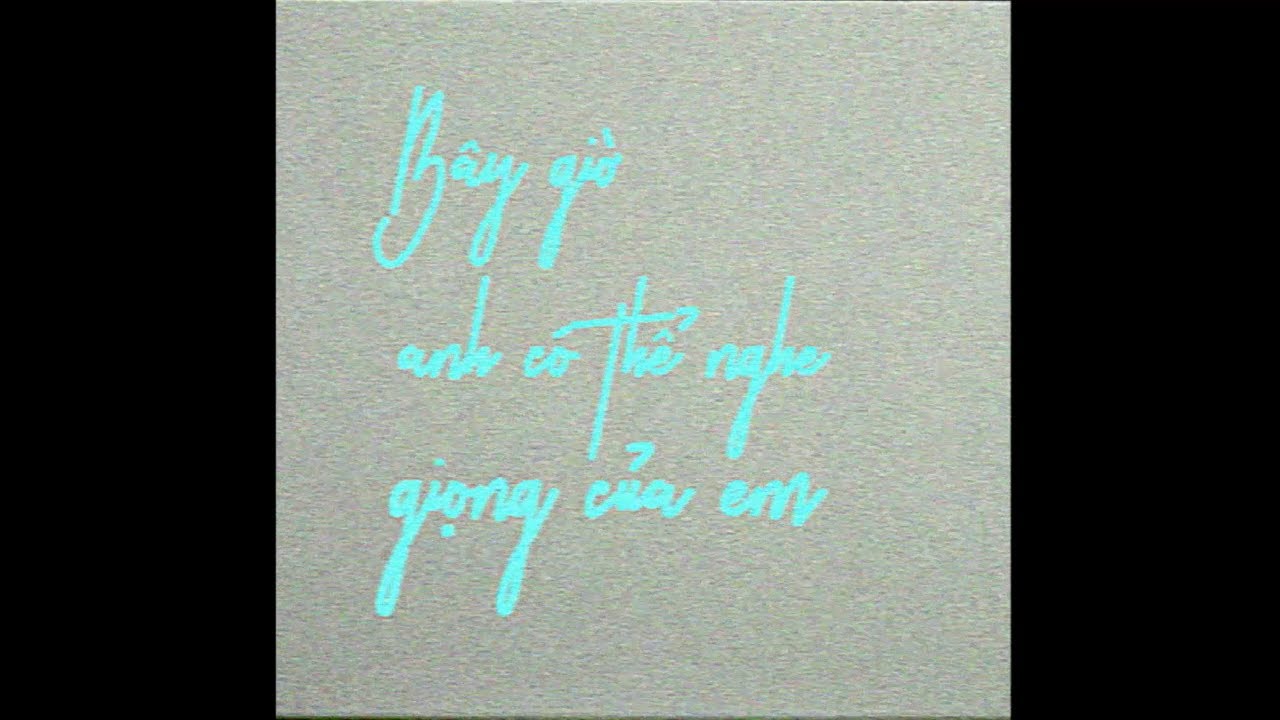 Bây giờ
anh có thể nghe
giọng của em